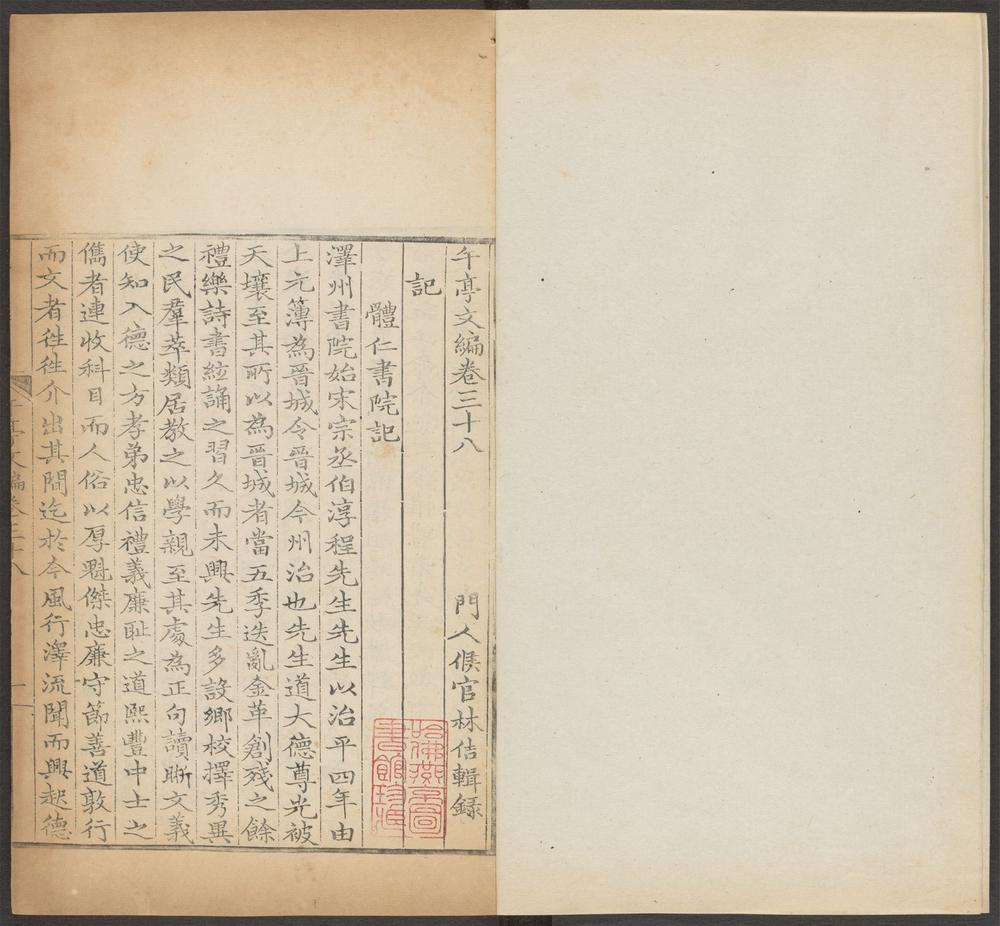 午亭文編卷三十八 門人候官林佶輯錄
記
體仁書院記
澤州書院始宋宗丞伯淳程先生先生以治平四年由
上元簿為晉城令晉城今州治也先生道大德尊光被
天壤至其所以為晉城者當五季迭亂金革創殘之餘
禮樂詩書絃誦之習久而未興先生多設鄉校擇秀異
之民羣萃類居教之以學親至其處為正句讀晰文義
使知入德之方孝弟忠信禮義廉恥之道熙豐中士之
儁者連收科目而人俗以厚魁傑忠廉守節善道敦行
而文者往往介出其間迄於今風行澤流聞而興起德
午亭文編卷三十八 一
哈佛燕京圖書館珍藏